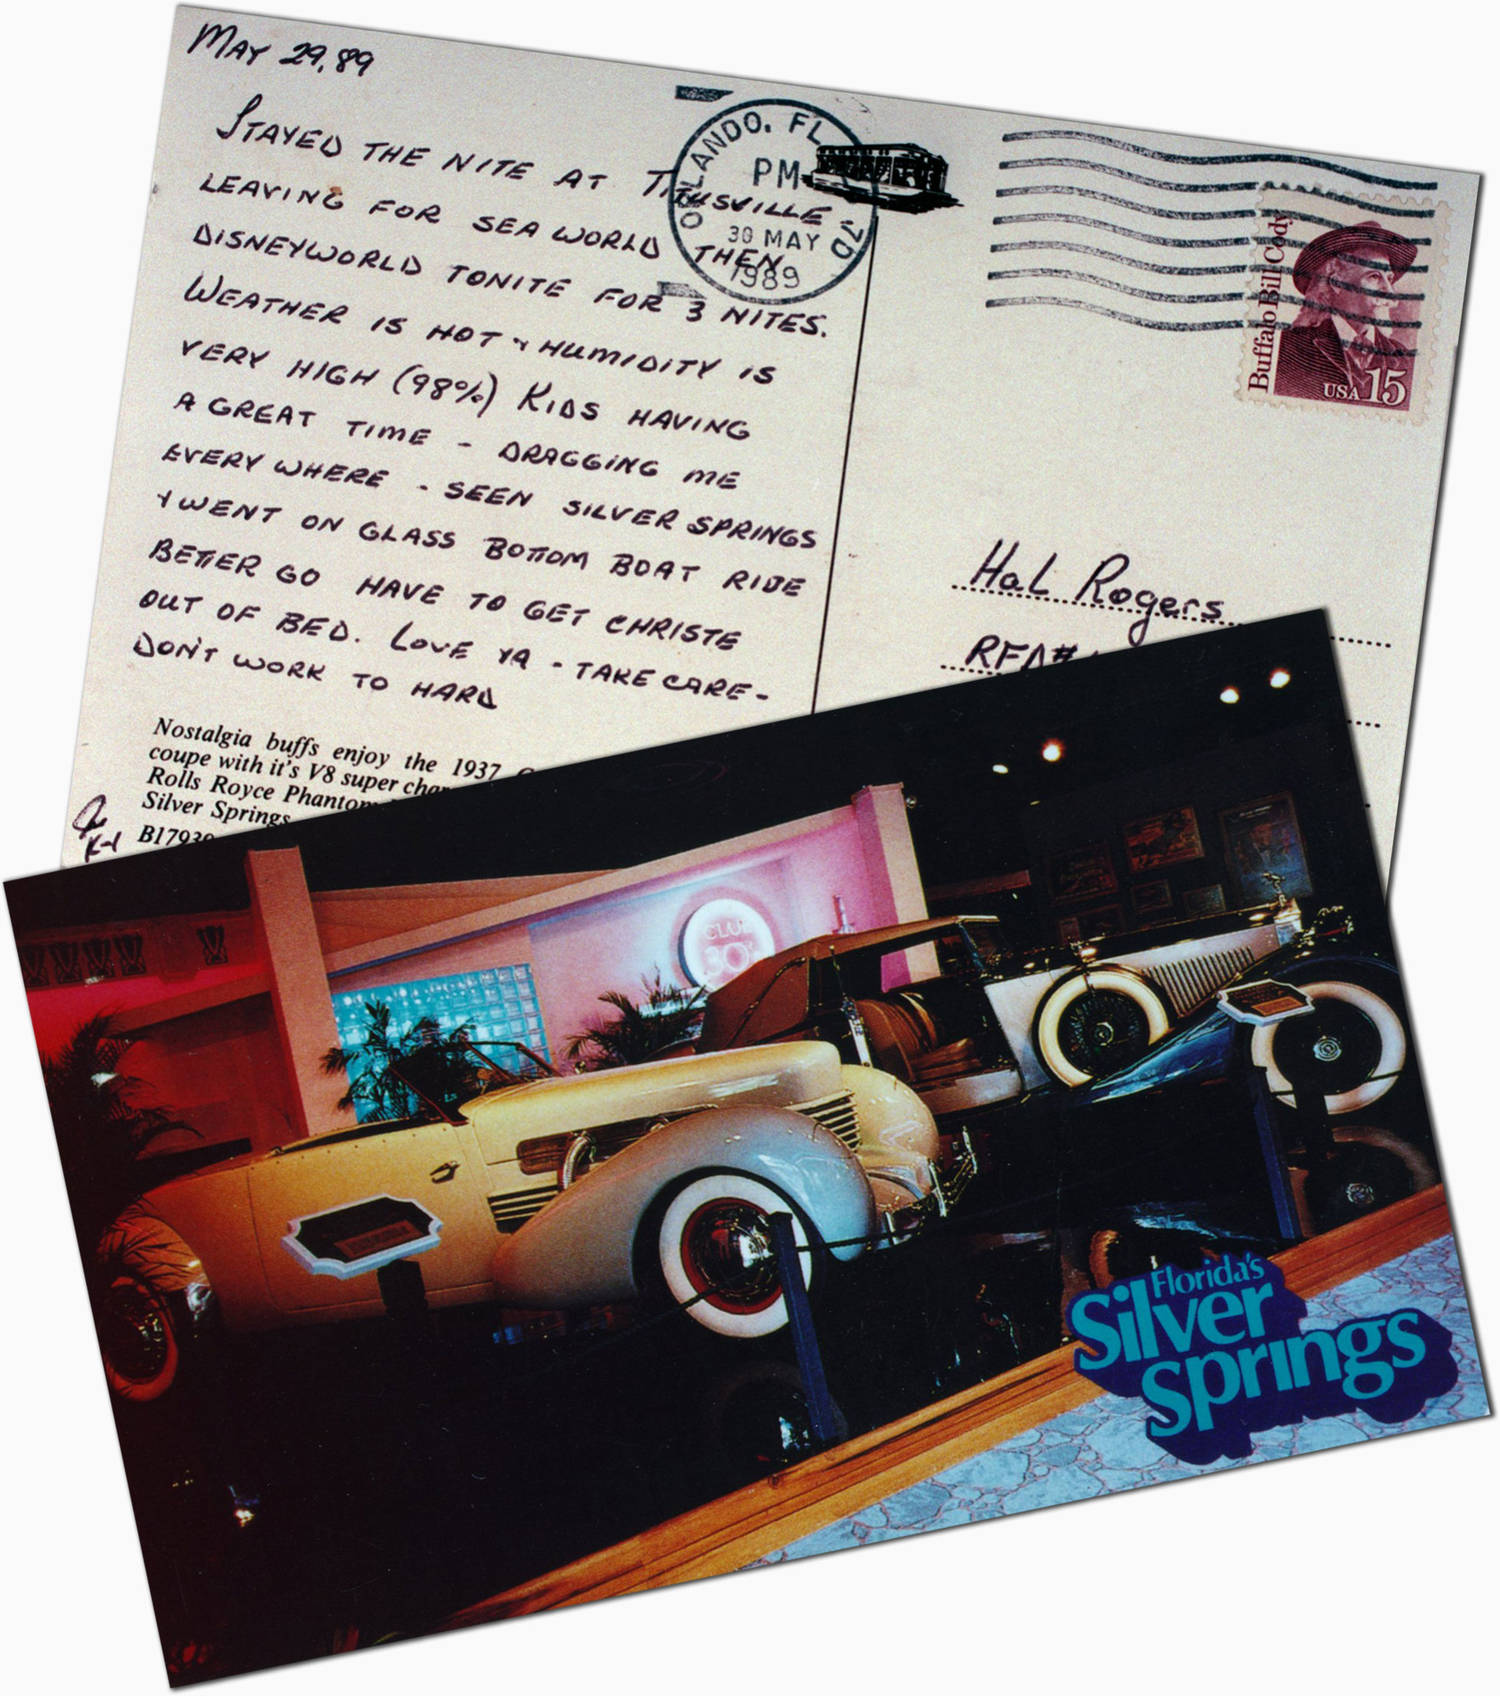 MAY 29, 89
STAYED THE NITE AT TITUSVILLE -
LEAVING FOR SEA WORLD THEN
DISNEYWORLD TONITE FOR 3 NITES.
WEATHER IS HOT + HUMIDITY IS
VERY HIGH (98%) KIDS HAVING
A GREAT TIME - DRAGGING ME
EVERY WHERE - SEEN SILVER SPRINGS
+ WENT ON GLASS BOTTOM BOAT RIDE
BETTER GO HAVE TO GET CHRISTE
OUT OF BED. LOVE YA - TAKE CARE -
DON'T WORK TO HARD
Nostalgia buffs enjoy the 1937
coupe with it's V8 super
Rolls Royce Phantom
Silver Springs
B1793
ORLANDO, FL
PM
30 MAY
1989
Buffalo Bill Cody
USA 15
Hal Rogers
RFD#
CLUB
30's
Florida's
Silver
Springs